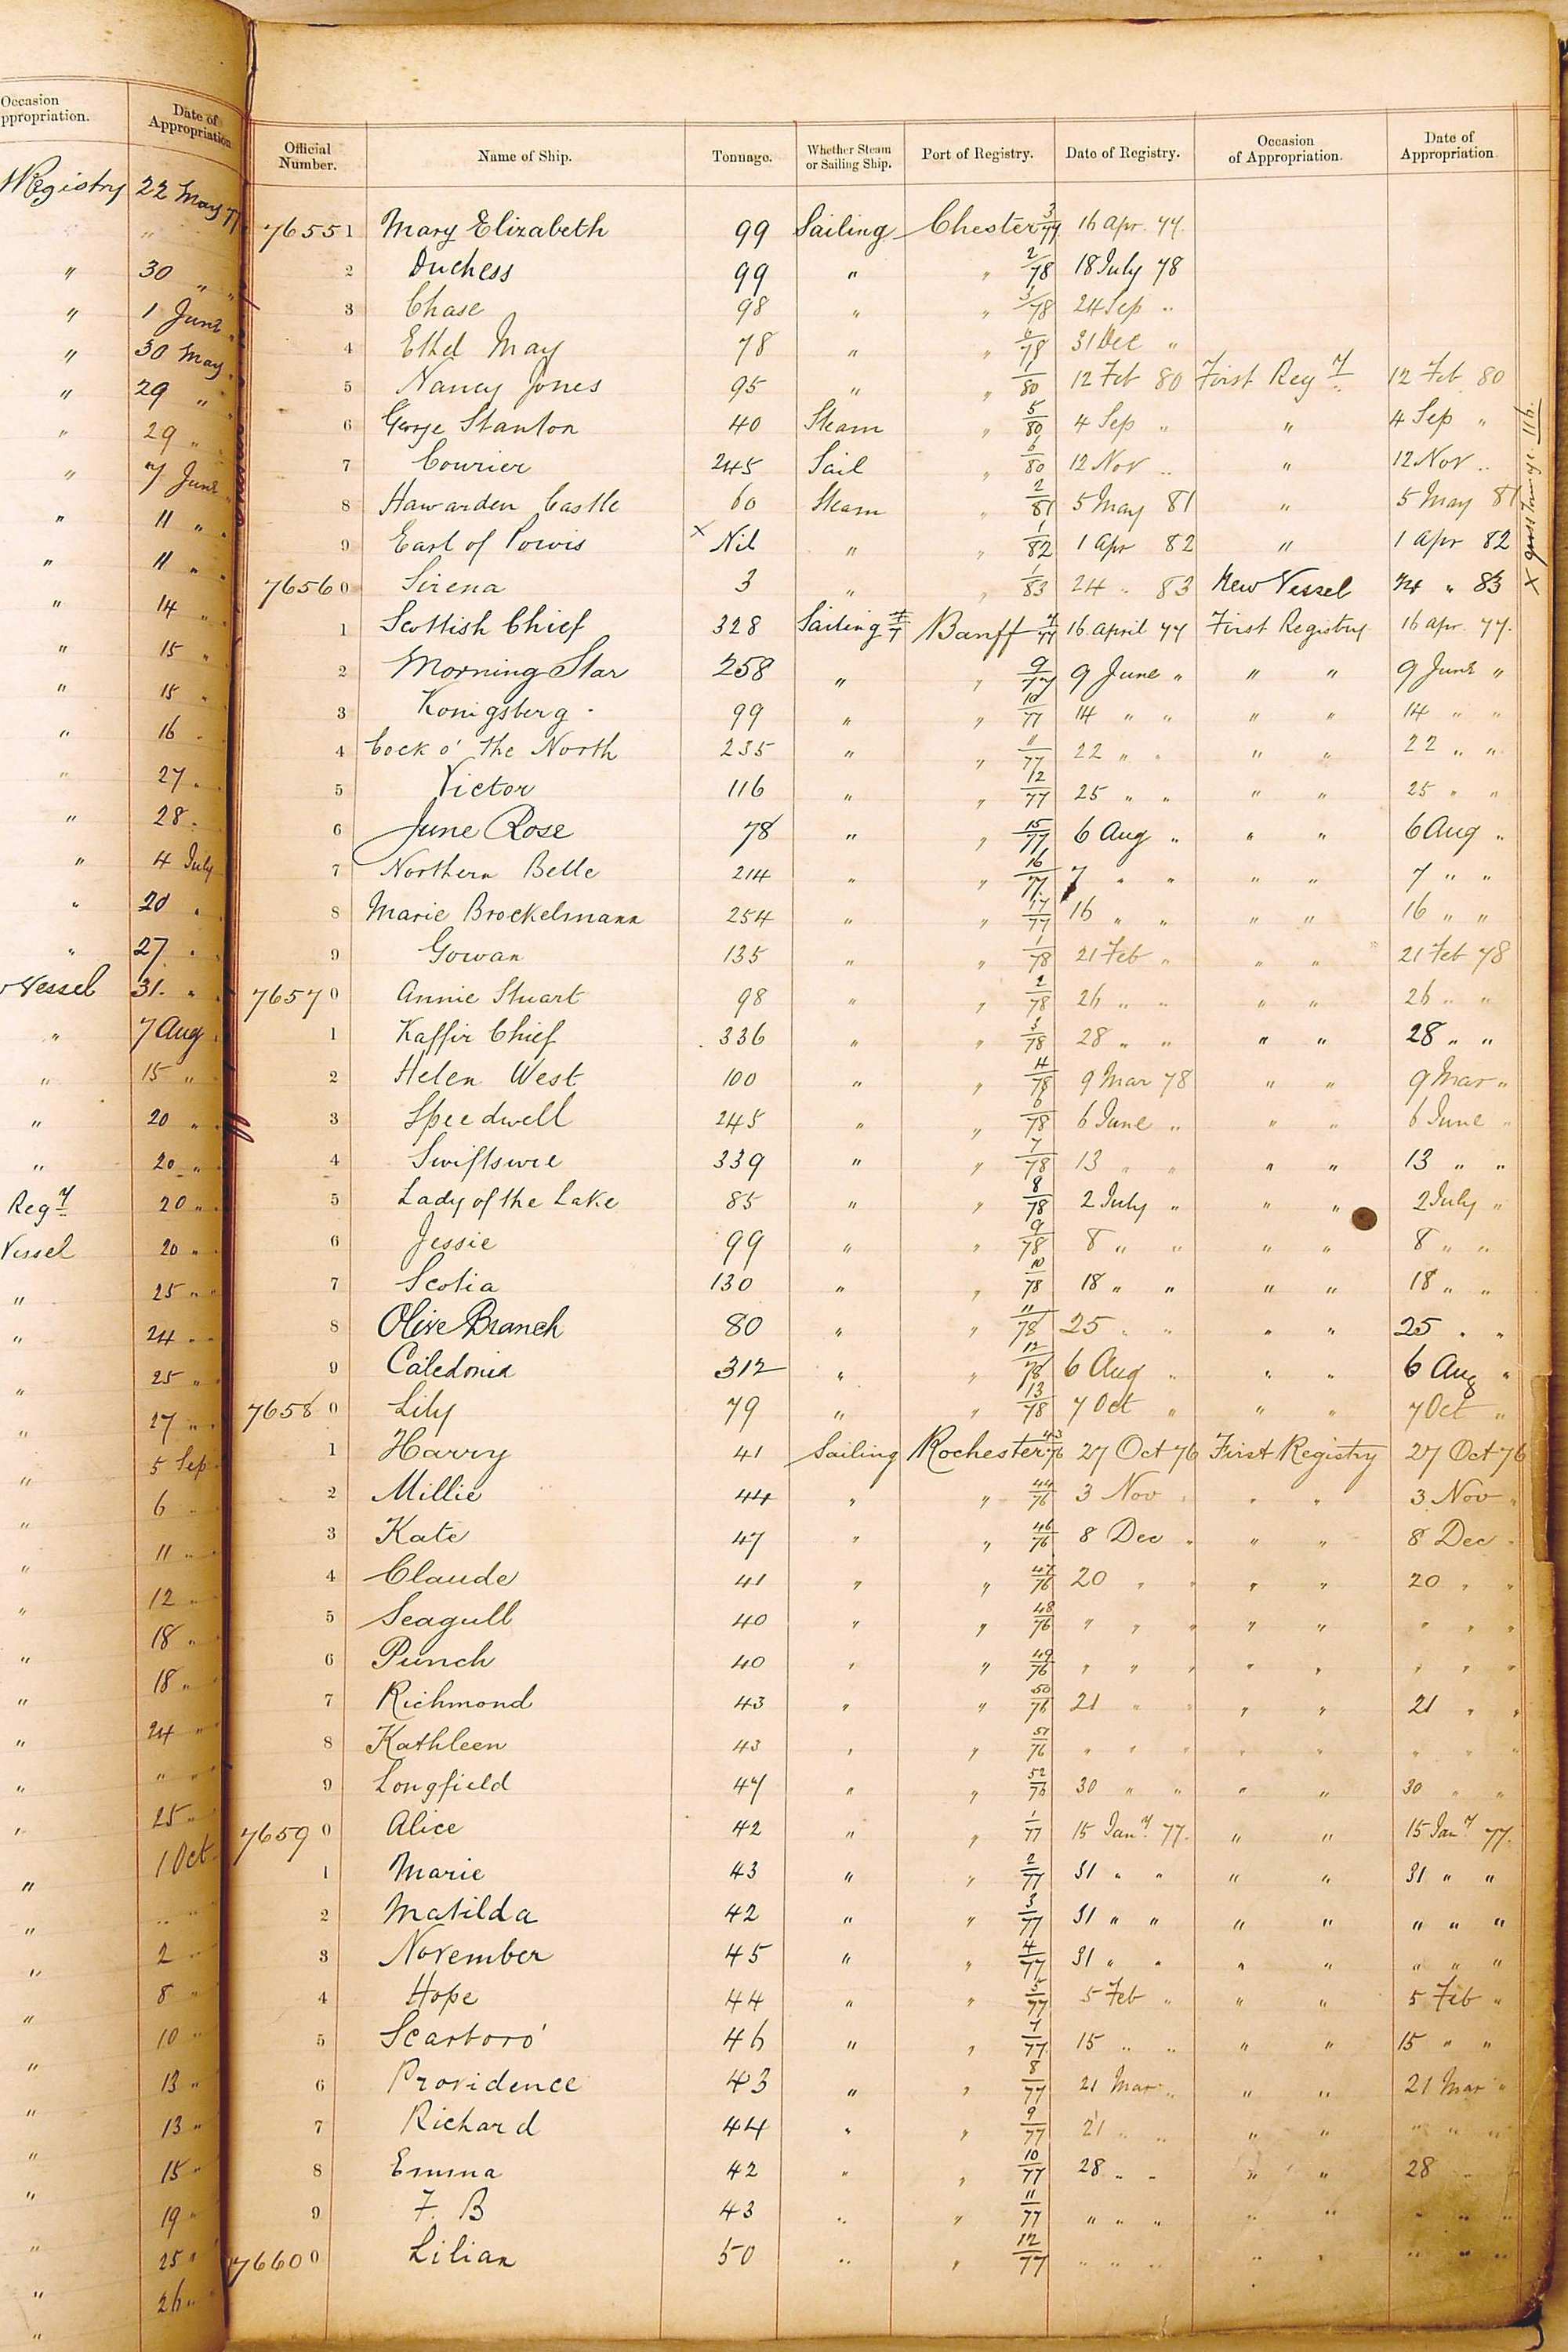 Occasion
ppropriation.
Date of
Appropriation
Registry 22 May 77
"
" 30 " "
" 1 June "
" 30 May "
" 29 " "
" 29 "
" 7 June "
" 11 " "
" 11 " "
" 14 "
" 15 "
" 15 "
" 16 "
" 27 "
" 28 "
" 4 July
" 20 "
" 27 "
Vessel 31 "
" 7 Aug
" 15 "
" 20 "
" 20 "
Regy 20 "
Vessel 20 "
" 25 " "
" 24 "
" 25 "
" 27 "
" 5 Sep
" 6 "
" 11 "
" 12 "
" 18 "
" 18 "
" 24 "
" " "
" 25 "
" 1 Oct
" " "
" 2 "
" 8 "
" 10 "
" 13 "
" 13 "
" 15 "
" 19 "
" 25 "
" 26 "
Official Number. Name of Ship. Tonnage. Whether Steam or Sailing Ship. Port of Registry. Date of Registry. Occasion of Appropriation. Date of Appropriation
76551 Mary Elizabeth 99 Sailing Chester 3/77 16 Apr. 77.
2 Duchess 99 " " 2/78 18 July 78
3 Chase 98 " " 3/78 24 Sep "
4 Ethel May 78 " " 6/78 31 Dec "
5 Nancy Jones 95 " " 1/80 12 Feb 80 First Regy 12 Feb 80
6 George Stanton 40 Steam " 5/80 4 Sep " " 4 Sep "
7 Courier 245 Sail " 6/80 12 Nov " " 12 Nov "
8 Hawarden Castle 60 Steam " 2/81 5 May 81 " 5 May 81
9 Earl of Powis × Nil " " 1/82 1 Apr 82 " 1 Apr 82
76560 Sirena 3 " " 1/83 24 " 83 New Vessel 24 " 83
× gross tonnage 116.
1 Scottish Chief 328 Sailing Banff 7/77 16 April 77 First Registry 16 Apr. 77.
2 Morning Star 258 " " 9/77 9 June " " " 9 June "
3 Konigsberg 99 " " 10/77 14 " " " " 14 " "
4 Cock o' the North 235 " " 11/77 22 " " " " 22 " "
5 Victor 116 " " 12/77 25 " " " " 25 " "
6 June Rose 78 " " 15/77 6 Aug " " " 6 Aug "
7 Northern Belle 214 " " 16/77 7 " " " " 7 " "
8 Marie Brockelmann 254 " " 17/77 16 " " " " 16 " "
9 Gowan 135 " " 1/78 21 Feb " " " 21 Feb 78
76570 Annie Stuart 98 " " 2/78 26 " " " " 26 " "
1 Kaffir Chief 336 " " 3/78 28 " " " " 28 " "
2 Helen West 100 " " 4/78 9 Mar 78 " " 9 Mar "
3 Speedwell 245 " " 6/78 6 June " " " 6 June "
4 Swiftsure 339 " " 7/78 13 " " " " 13 " "
5 Lady of the Lake 85 " " 8/78 2 July " " " 2 July "
6 Jessie 99 " " 9/78 8 " " " " 8 " "
7 Scotia 130 " " 10/78 18 " " " " 18 " "
8 Olive Branch 80 " " 11/78 25 " " " " 25 " "
9 Caledonia 312 " " 12/78 6 Aug " " " 6 Aug "
76580 Lily 79 " " 13/78 7 Oct " " " 7 Oct "
1 Harry 41 Sailing Rochester 43/76 27 Oct 76 First Registry 27 Oct 76
2 Millie 44 " " 44/76 3 Nov " " " 3 Nov "
3 Kate 47 " " 46/76 8 Dec " " " 8 Dec "
4 Claude 41 " " 47/76 20 " " " " 20 " "
5 Seagull 40 " " 48/76 " " " " " " " "
6 Punch 40 " " 49/76 " " " " " " " "
7 Richmond 43 " " 50/76 21 " " " " 21 " "
8 Kathleen 43 " " 51/76 " " " " " " " "
9 Longfield 47 " " 52/76 30 " " " " 30 " "
76590 Alice 42 " " 1/77 15 Jany 77. " " 15 Jany 77.
1 Marie 43 " " 2/77 31 " " " " 31 " "
2 Matilda 42 " " 3/77 31 " " " " " " "
3 November 45 " " 4/77 31 " " " " " " "
4 Hope 44 " " 5/77 5 Feb " " " 5 Feb "
5 Scarboro' 46 " " 7/77 15 " " " " 15 " "
6 Providence 43 " " 8/77 21 Mar " " " 21 Mar "
7 Richard 44 " " 9/77 21 " " " " " " "
8 Emma 42 " " 10/77 28 " " " " 28 " "
9 F. B 43 " " 11/77 " " " " " " " "
76600 Lilian 50 " " 12/77 " " " " " " " "